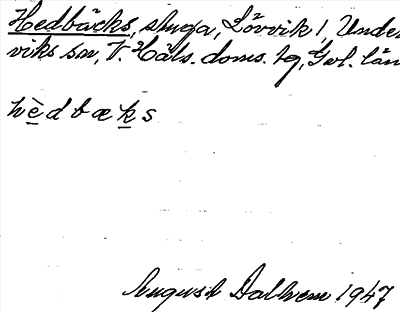 Hedbäcks, stuga, Lövvik 1, Under
viks sn, V. Häls. doms. tg, Gvl. län
hèdbæks
August Dalhem 1947